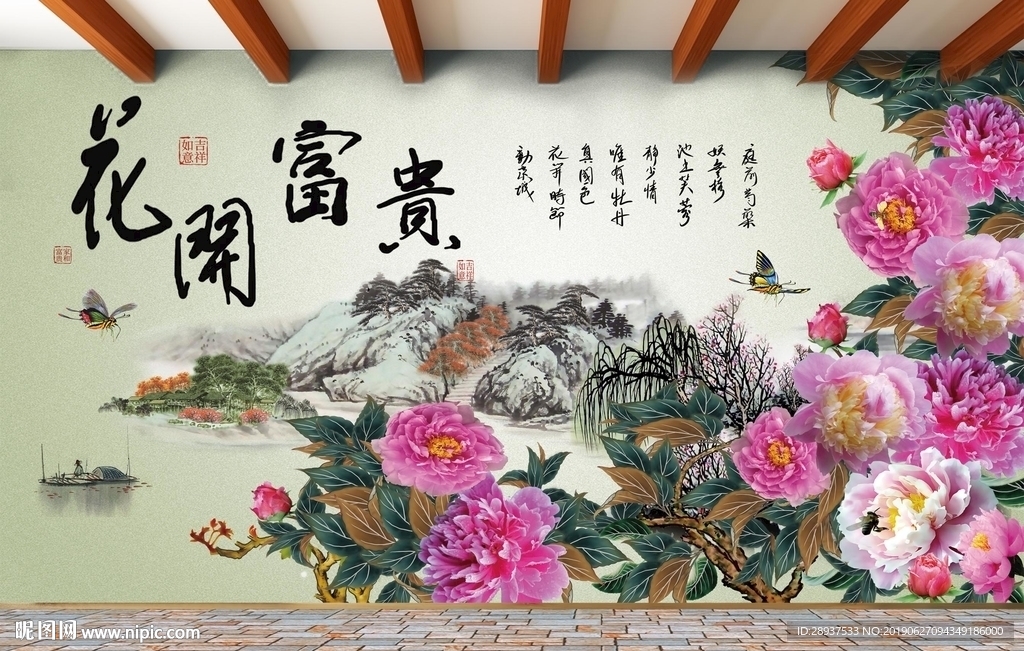 花開富貴
吉祥如意
家和富貴
吉祥如意
庭前芍藥
妖無格
池上芙蓉
静少情
唯有牡丹
真國色
花开時節
動京城
昵图网 www.nipic.com
ID:28937533 NO:20190627094349186000